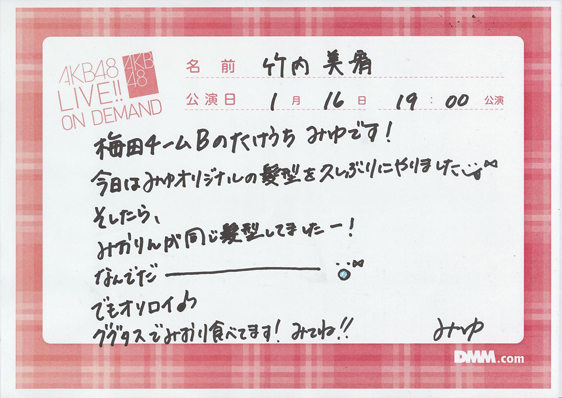 AKB48
LIVE!!
ON DEMAND
AKB
48
名前 竹内 美宥
公演日 1月 16日 19:00 公演
梅田チームBのたけうち みゆです！
今日はみゆオリジナルの髪型を久しぶりにやりました
そしたら、
みかりんが同じ髪型してましたー！
なんでだ――――
でもオソロイ♪
ググタスでみおり食べてます！みてね!!
みゆ
DMM.com